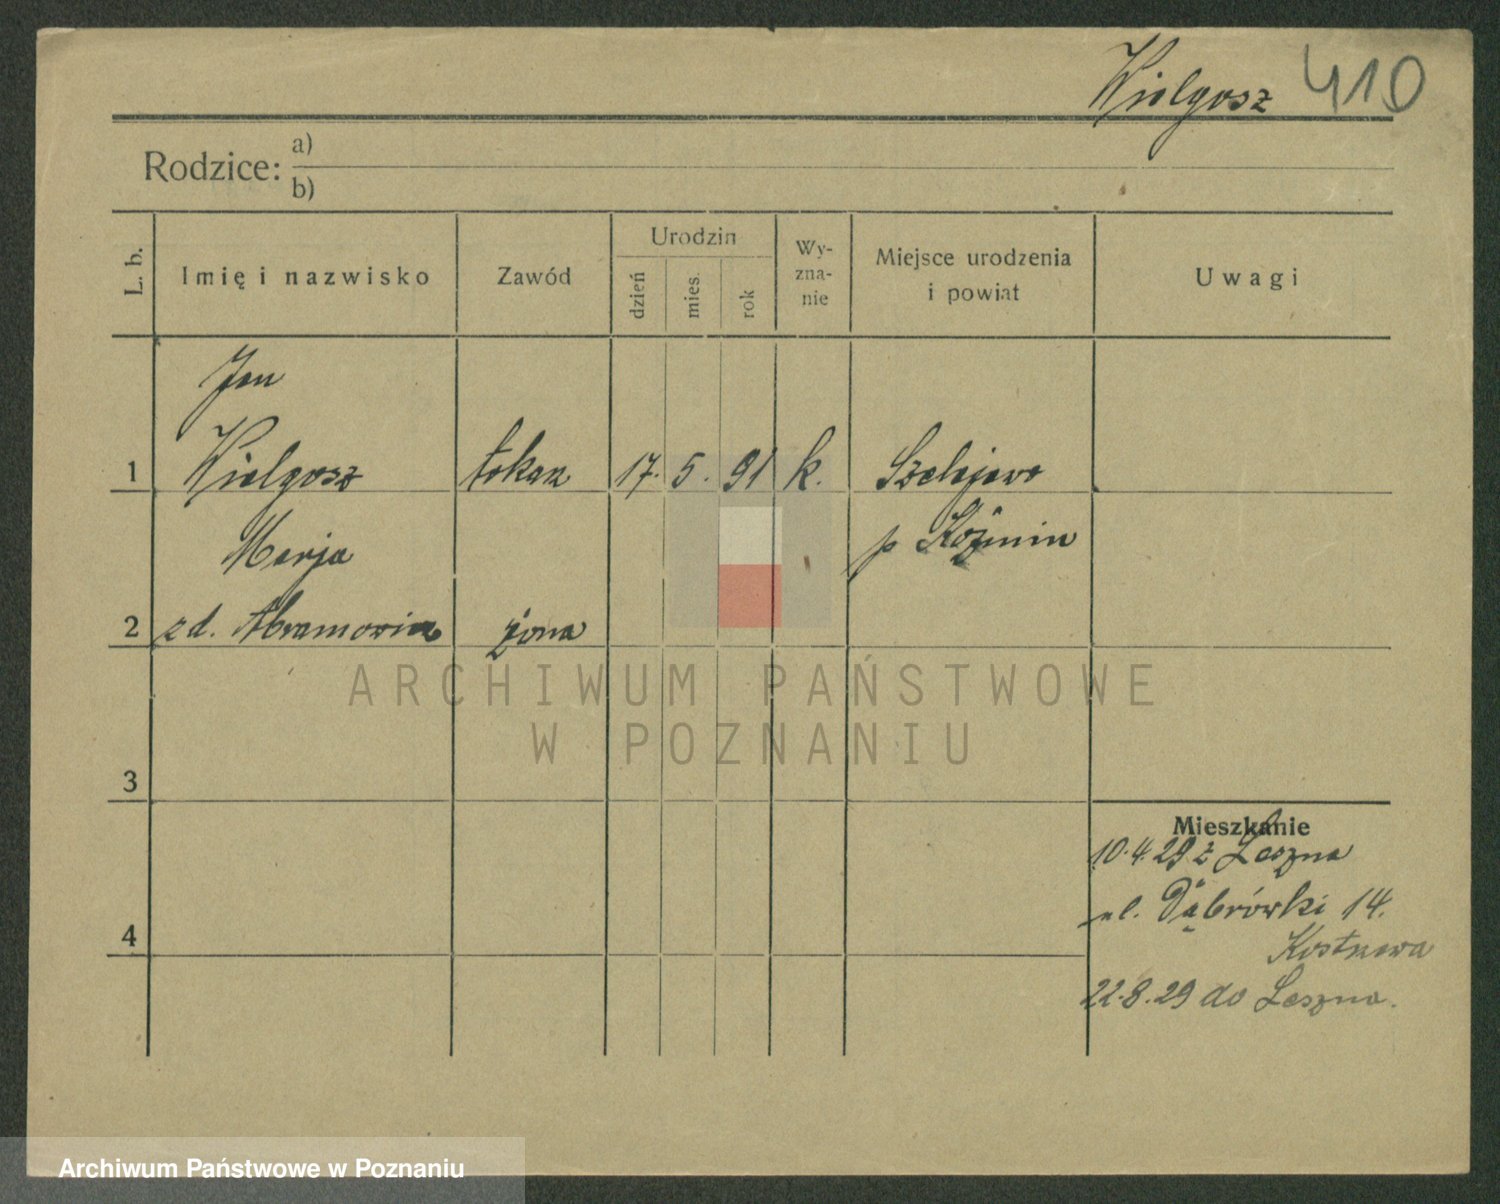 Wielgosz 410
Rodzice: a)
b)
L. b. Imię i nazwisko Zawód Urodzin dzień mies. rok Wy-zna-nie Miejsce urodzenia i powiat Uwagi
Jan
1 Wielgosz tokarz 17. 5. 91 k. Szelejewo
Marja p Koźmin
2 z d. Abramowicz żona
ARCHIWUM PAŃSTWOWE
W POZNANIU
3
Mieszkanie
10.4.29 z Leszna
ul. Dąbrówki 14.
4
22.8.29 do Leszna.
Archiwum Państwowe w Poznaniu